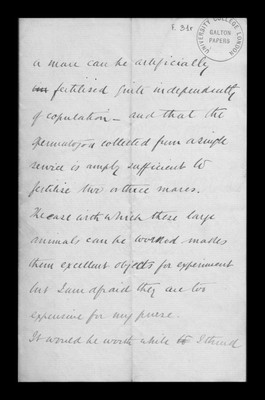 F. 34r
UNIVERSITY COLLEGE LONDON
GALTON
PAPERS
a mare can be artificially
fertilised quite independently
of copulation – and that the
spermatozoa collected from a single
service is amply sufficient to
fertilise two or three mares.
The ease with which these large
animals can be worked makes
them excellent objects for experiment
but I am afraid they are too
expensive for my purse.
It would be worth while to I think